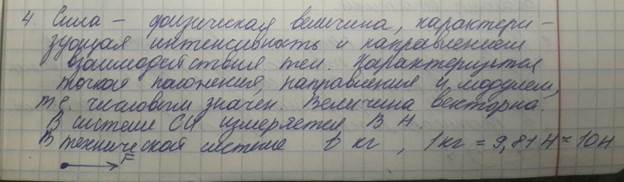 4. Сила – физическая величина, характери-
зующая интенсивность и направлением
взаимодействия тел. Характеризуется
точкой положения, направления и модулем,
т.е. числовым значен. Величина векторна.
В системе СИ измеряется в Н.
В технической системе в кг, 1 кг = 9,81 Н ≈ 10 Н
F